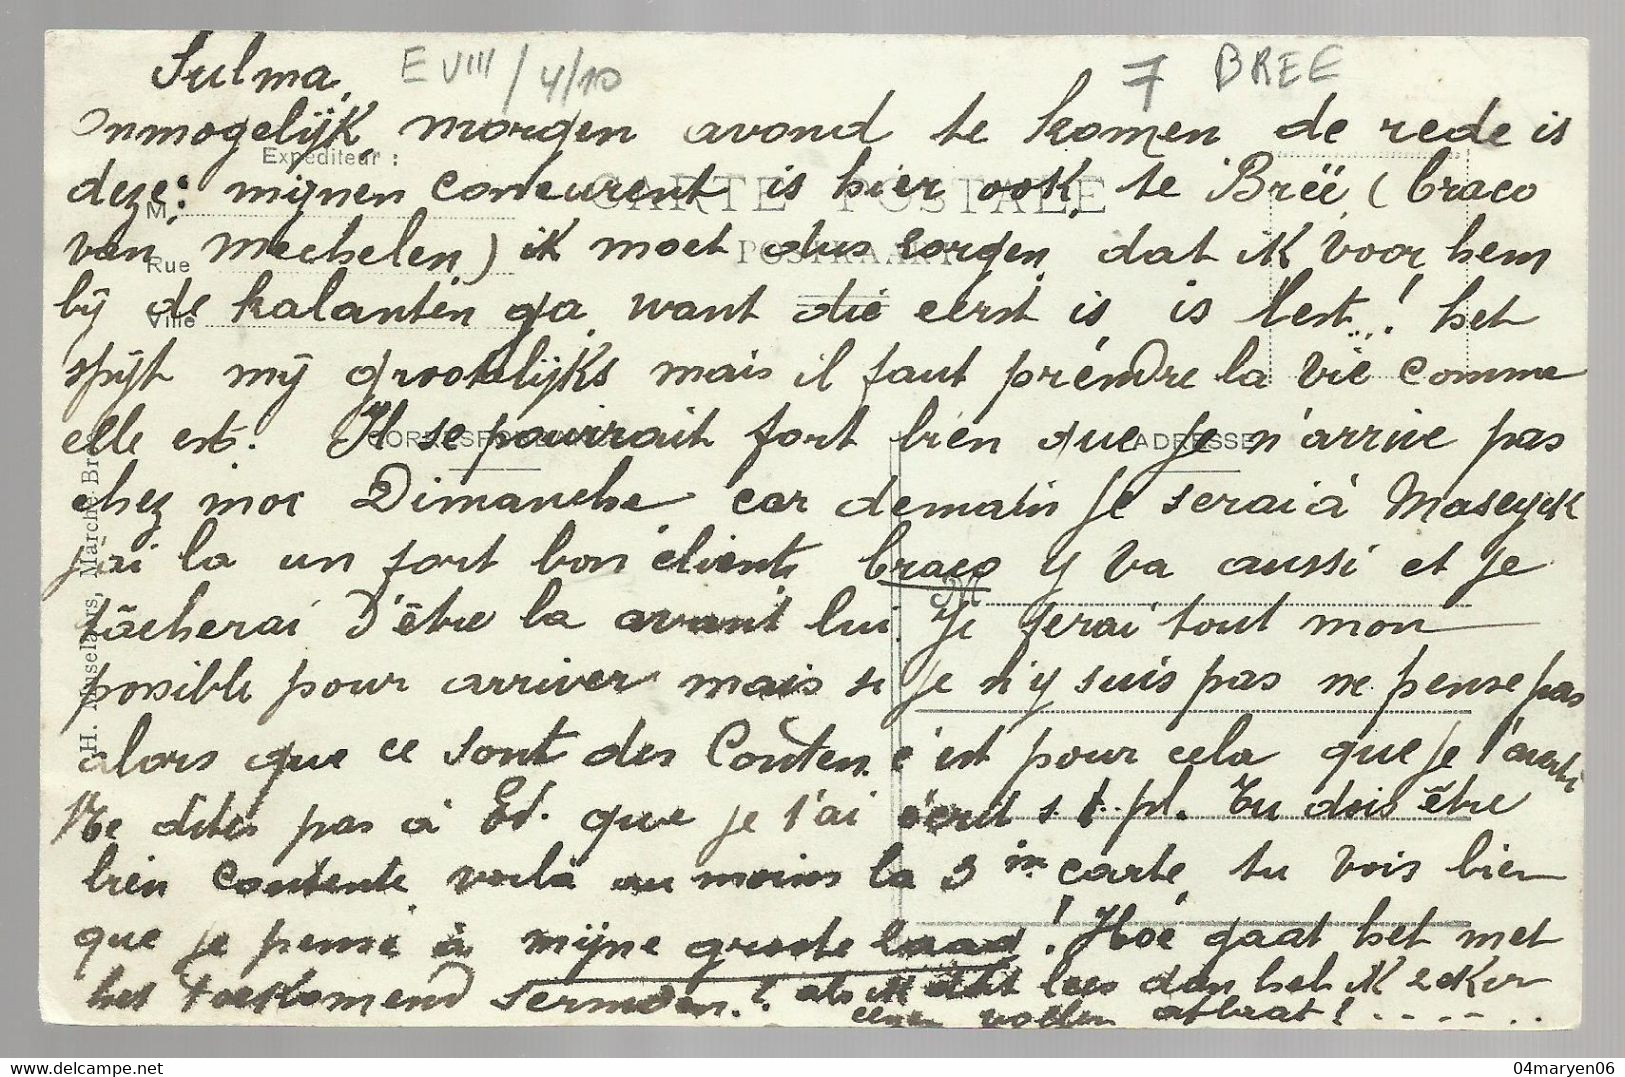 Sulma, E VIII / 4/10 7 BREE
Onmogelijk morgen avond te komen de rede is
Expéditeur :
deze: mijnen concurent is hier ook te Breë (braco
M.
CARTE POSTALE
van Mechelen) ik moet dus zorgen dat ik voor hem
Rue
POSTKAART
bij de kalanten ga want die eerst is is best..! het
Ville
spijt mij grootelijks mais il faut prendre la vie comme
elle est. Il se pourrait fort bien que je n'arrive pas
CORRESPONDANCE
ADRESSE
chez moi Dimanche car demain je serai à Maseyck
j'ai la un fort bon client braco y va aussi et je
M
tâcherai d'être la avant lui. Je ferai tout mon
possible pour arriver mais si je n'y suis pas ne pense pas
alors que ce sont des Conten c'est pour cela que je t'averti
Ne dites pas à Ed. que je t'ai écrit s. t. pl. Tu dois être
bien contente voilà au moins la 3 me carte, tu vois bien
que je pense à mijne groote ! Hoe gaat het met
het toekomend sermoen.? als ik dat lees dan heb ik zeker
eenen vollen !- - - - ..
H. Muselaers, Marché Br
04maryen06
delcampe.net